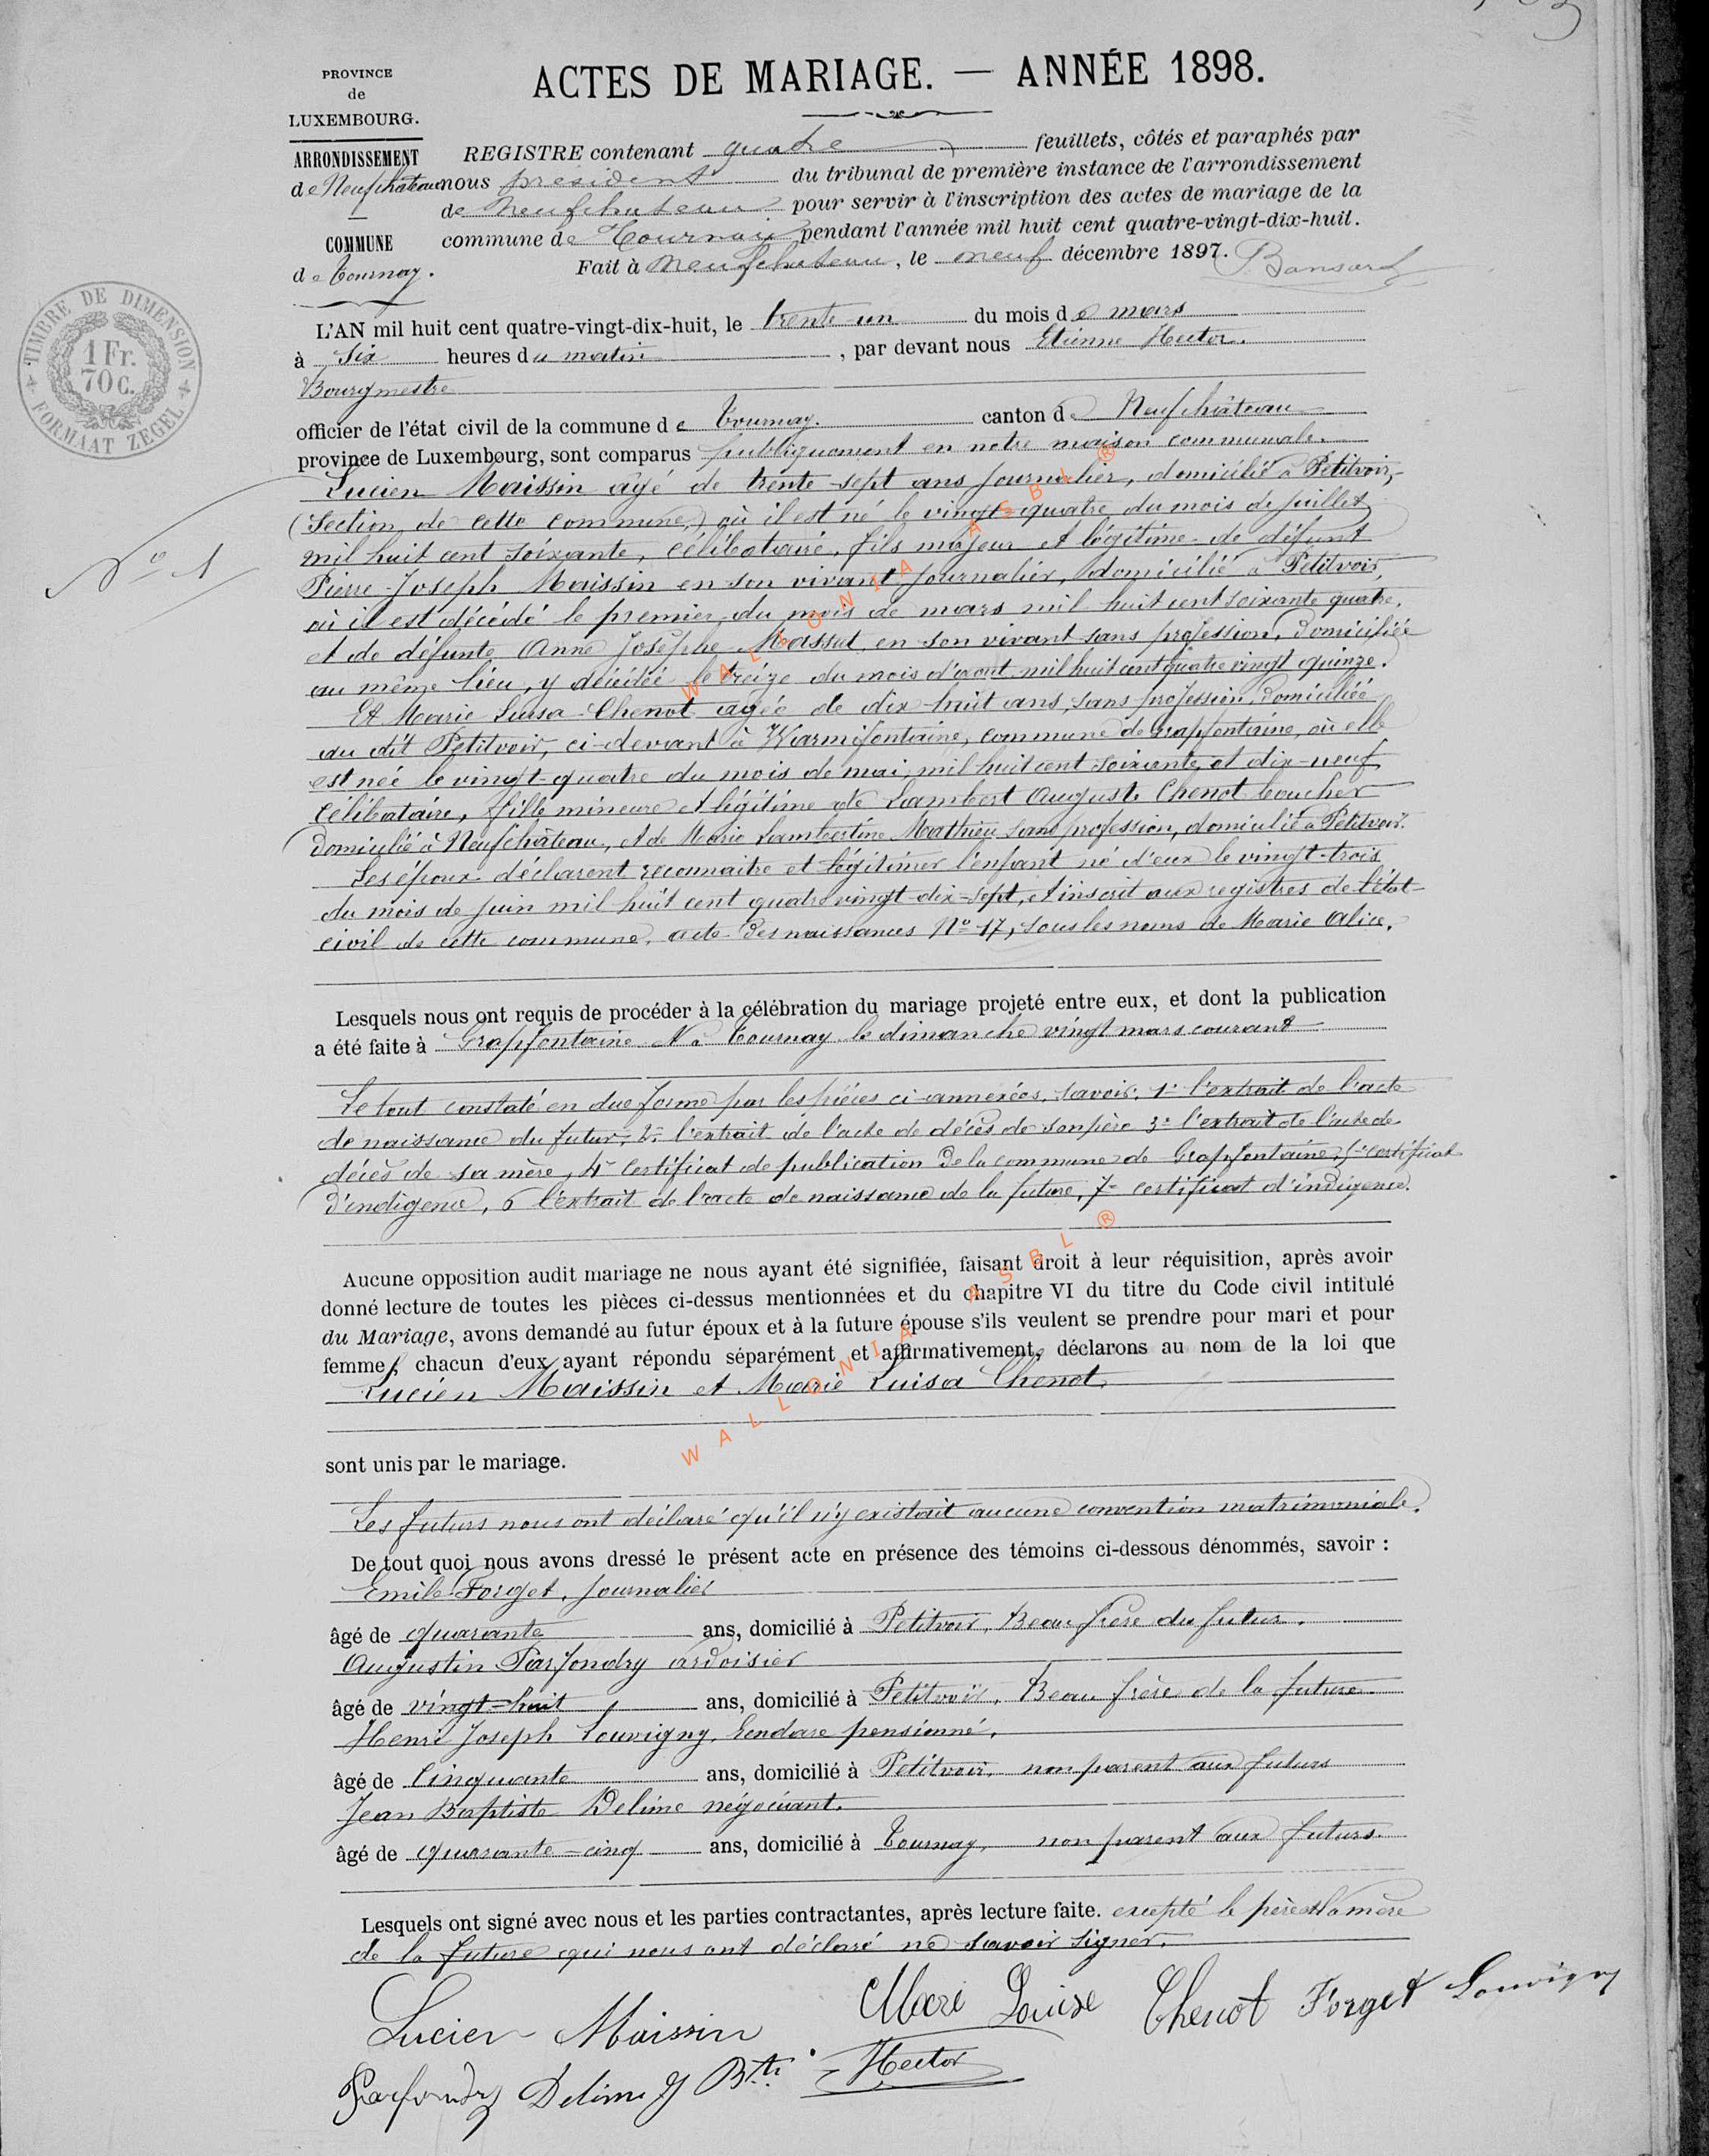 PROVINCE
de
LUXEMBOURG.
ARRONDISSEMENT
de Neufchateau
COMMUNE
de Tournay.
ACTES DE MARIAGE. — ANNÉE 1898.
REGISTRE contenant quatre feuillets, côtés et paraphés par
nous président du tribunal de première instance de l'arrondissement
de Neufchateau pour servir à l'inscription des actes de mariage de la
commune de Tournay pendant l'année mil huit cent quatre-vingt-dix-huit.
Fait à Neufchateau, le neuf décembre 1897.
TIMBRE DE DIMENSION
1 Fr.
70 C.
FORMAAT ZEGEL
L'AN mil huit cent quatre-vingt-dix-huit, le trente-un du mois de mars
à six heures du matin, par devant nous Etienne Hector.
Bourgmestre
officier de l'état civil de la commune de Tournay. canton de Neufchâteau
province de Luxembourg, sont comparus publiquement en notre maison communale.
Lucien Maissin âgé de trente-sept ans journalier, domicilié à Petitvoir,
(Section de cette commune,) où il est né le vingt-quatre du mois de juillet
mil huit cent soixante, célibataire, fils majeur et légitime de défunt
Pierre-Joseph Maissin en son vivant journalier, domicilié à Petitvoir,
où il est décédé le premier du mois de mars mil huit cent soixante quatre,
et de défunte Anne Josèphe Massut, en son vivant sans profession, domiciliée
au même lieu, y décédée le treize du mois d'août mil huit cent quatre vingt quinze.
Et Marie Luisa Chenot agée de dix-huit ans, sans profession, domiciliée
au dit Petitvoir, ci-devant à Warmifontaine, commune de Grapfontaine, où elle
est née le vingt-quatre du mois de mai, mil huit cent soixante et dix-neuf
célibataire, fille mineure et légitime de Lambert Auguste Chenot boucher
domicilié à Neufchâteau, et de Marie Lambertine Mathieu sans profession, domicilié à Petitvoir.
Les époux déclarent reconnaitre et légitimer l'enfant né d'eux le vingt-trois
du mois de juin mil huit cent quatre vingt-dix-sept, et inscrit aux registres de l'état-
civil de cette commune, acte des naissances No 17, sous les noms de Marie Alice.
No 1
Lesquels nous ont requis de procéder à la célébration du mariage projeté entre eux, et dont la publication
a été faite à Grapfontaine et à Tournay le dimanche vingt mars courant
Le tout constaté en due forme par les pièces ci-annexées, savoir: 1° l'extrait de l'acte
de naissance du futur, 2° l'extrait de l'acte de décès de son père 3° l'extrait de l'acte de
décès de sa mère, 4° certificat de publication de la commune de Grapfontaine, 5° certificat
d'indigence, 6 l'extrait de l'acte de naissance de la future, 7° certificat d'indigence.
Aucune opposition audit mariage ne nous ayant été signifiée, faisant droit à leur réquisition, après avoir
donné lecture de toutes les pièces ci-dessus mentionnées et du chapitre VI du titre du Code civil intitulé
du Mariage, avons demandé au futur époux et à la future épouse s'ils veulent se prendre pour mari et pour
femme, chacun d'eux ayant répondu séparément et affirmativement, déclarons au nom de la loi que
Lucien Maissin et Marie Luisa Chenot,
sont unis par le mariage.
Les futurs nous ont déclaré qu'il n'y existait aucune convention matrimoniale.
De tout quoi nous avons dressé le présent acte en présence des témoins ci-dessous dénommés, savoir :
Emile Forget, journalier
âgé de quarante ans, domicilié à Petitvoir, Beau frère du futur.
Augustin Parfondry ardoisier
âgé de vingt-huit ans, domicilié à Petitvoir, Beau frère de la future.
Henri Joseph Louvigny, Gendare pensionné,
âgé de Cinquante ans, domicilié à Petitvoir, non parent aux futurs
Jean Baptiste Delime négociant.
âgé de quarante-cinq ans, domicilié à Tournay, non parent aux futurs.
Lesquels ont signé avec nous et les parties contractantes, après lecture faite. excepté le père et la mère
de la future qui nous ont déclaré ne savoir signer.
Lucien Maissin
Mari Louise Chenot Forget Louvigny
Parfondry Delime J Bte Hector
WALLONIA ASBL ®
WALLONIA ASBL ®